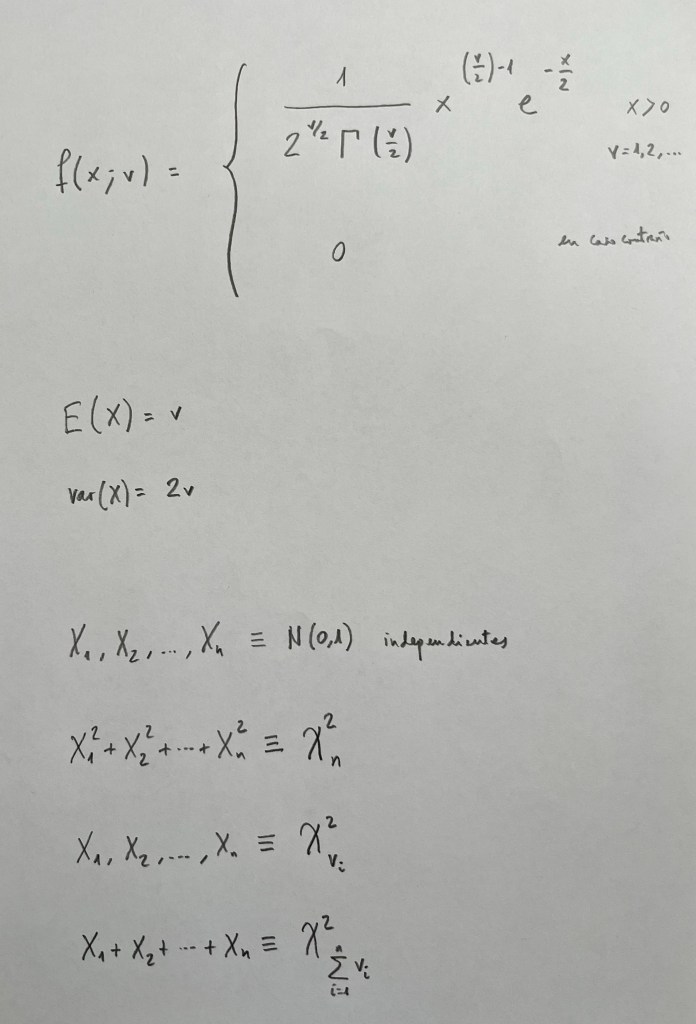 f(x;v) = { 1 / (2^{v/2} Γ(v/2)) x^{(v/2)-1} e^{-x/2} x>0
v=1,2,...
0 en caso contrario
E(X) = v
var(X) = 2v
X₁, X₂, ..., Xₙ ≡ N(0,1) independientes
X₁² + X₂² + ... + Xₙ² ≡ χ²ₙ
X₁, X₂, ..., Xₙ ≡ χ²_{vᵢ}
X₁ + X₂ + ... + Xₙ ≡ χ²_{∑_{i=1}^{n} vᵢ}